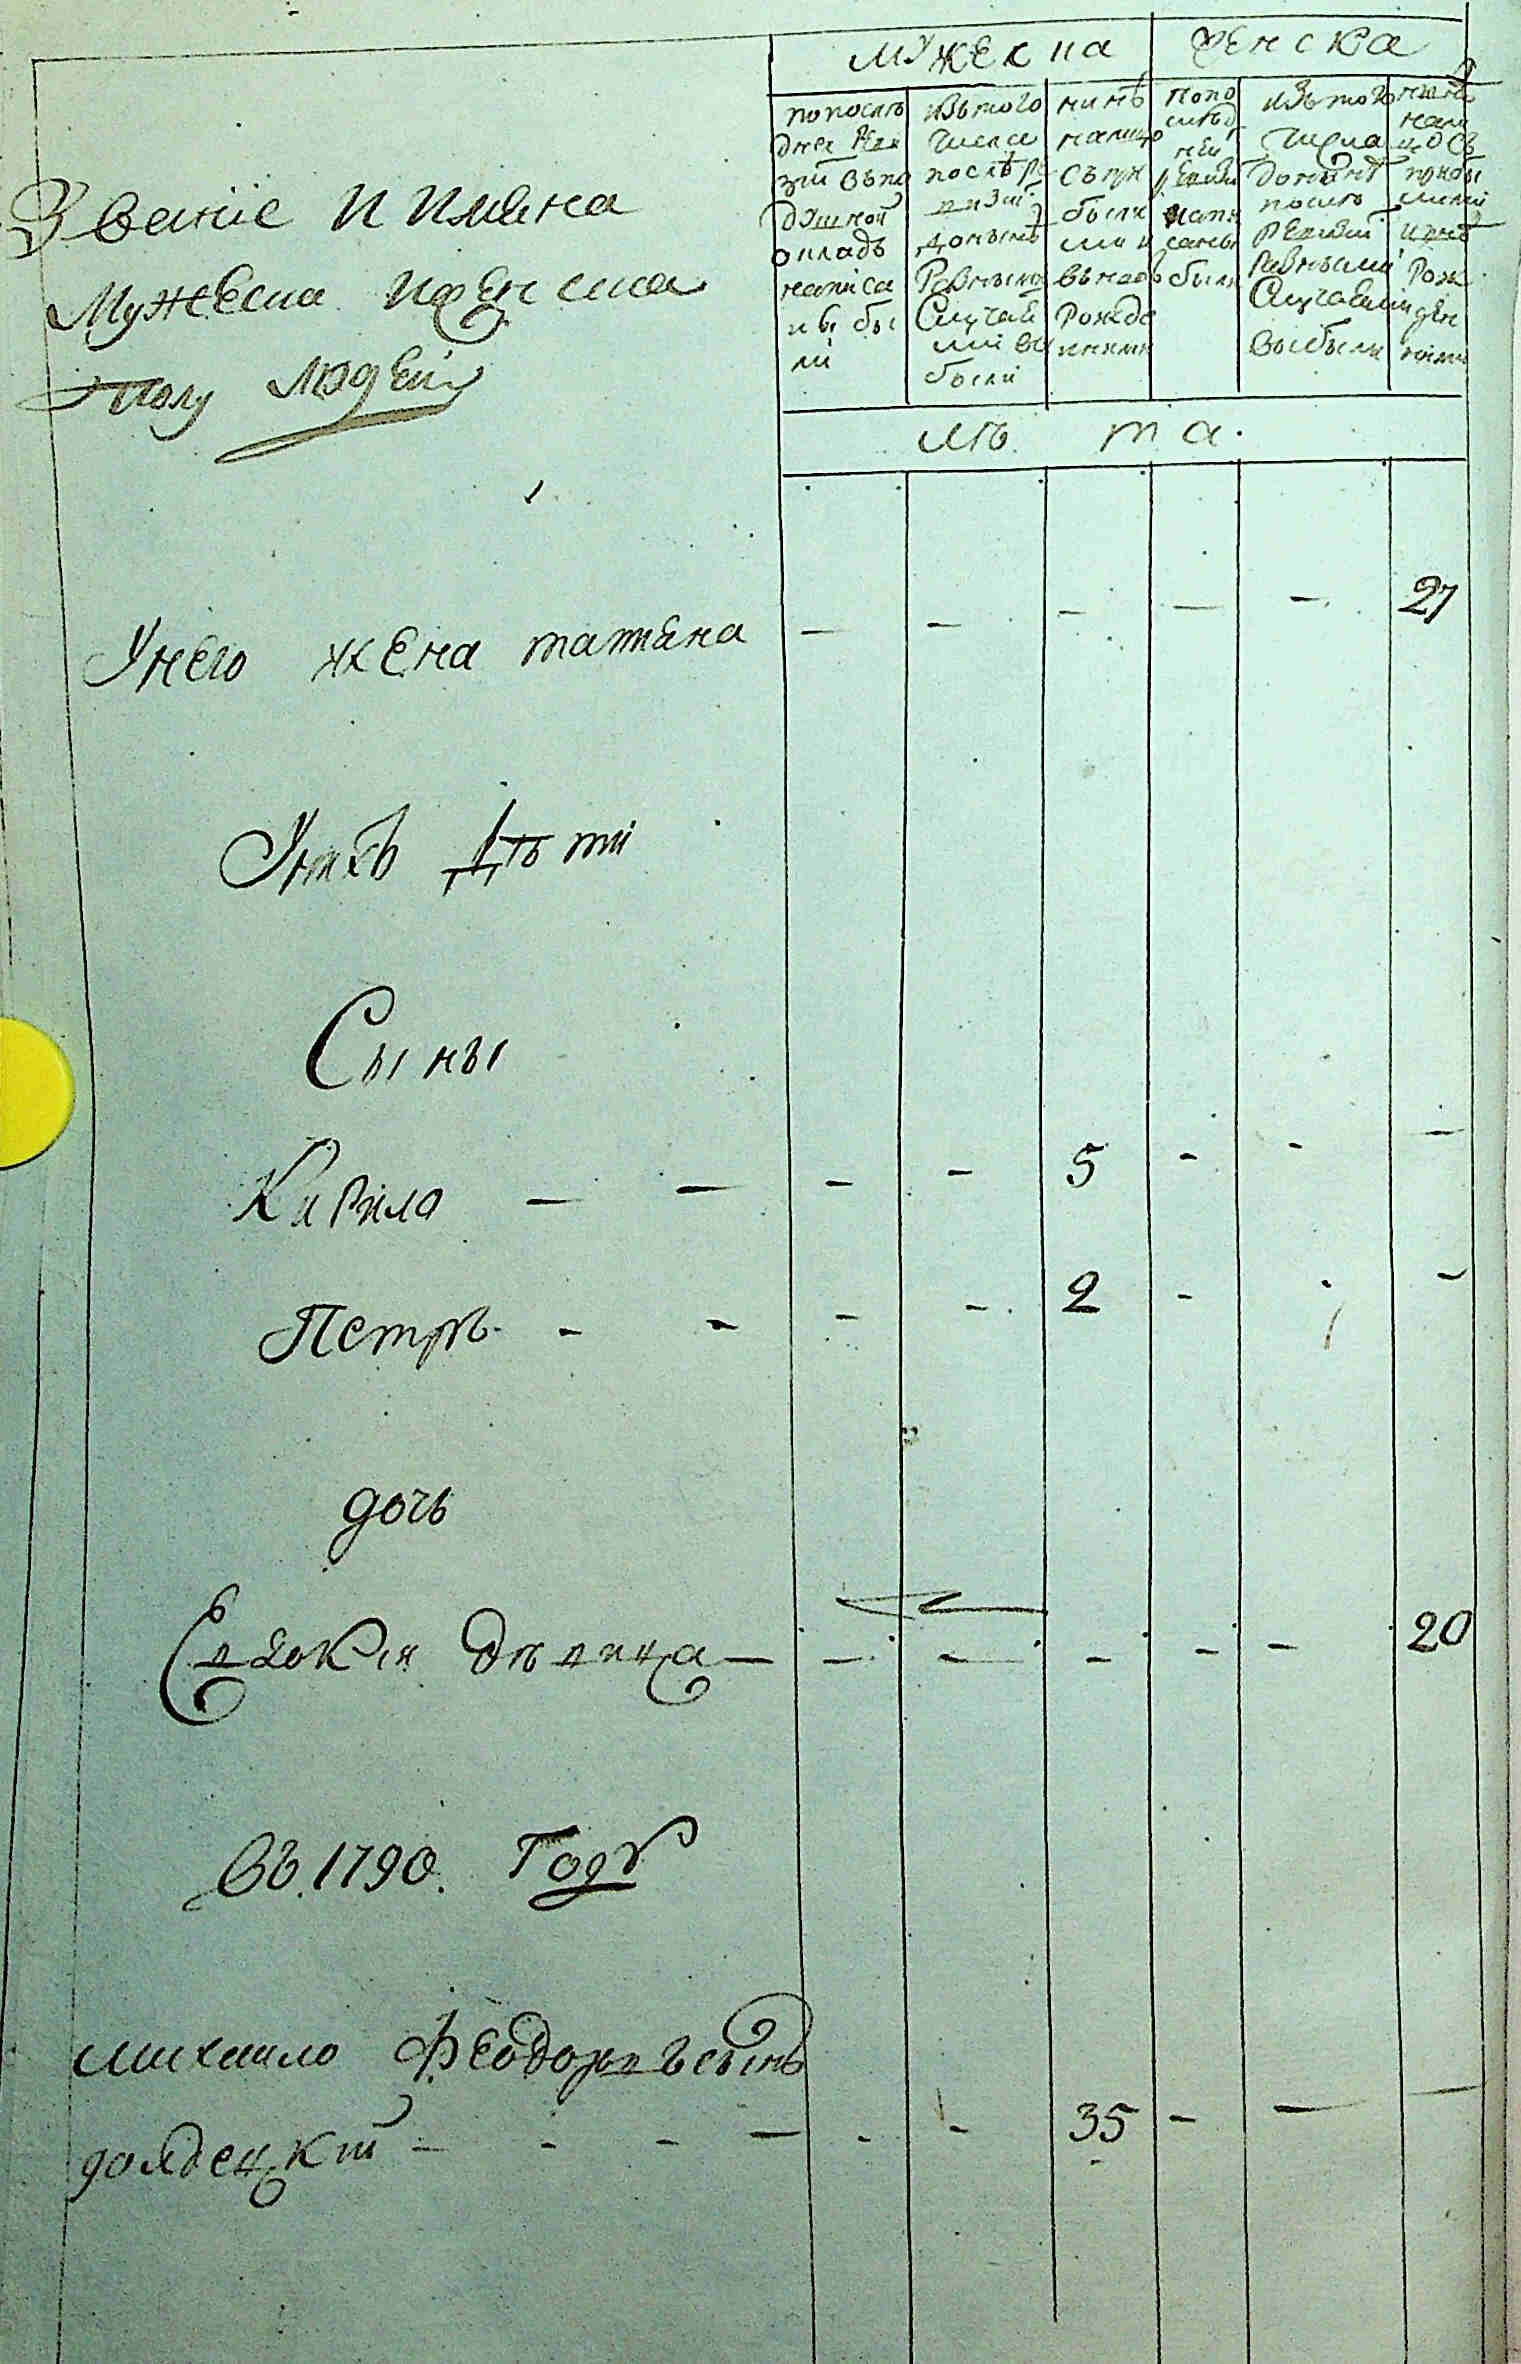 Мужеска Женска
Званіе И имѣна
Мужеска иженска
Полу людеи
попослѣ
дней Реви
зіи въпо
душной
окладъ
написа
ны бы
ли
Изътого
числа
послѣ ре
визіи
донынѣ
Разными
Случая
ми вы
были
нынѣ
налицо
съпри
былы
ми и
вновь
Рожде
нными
Попо
слѣд
ней
Ревизи
напи
саны
были
Изътого
числа
донынѣ
послѣ
Ревизіи
Разными
Случаями
выбыли
нынѣ
нали
цо съ
прибы
лыми
Рож
ден
ными
лѣ та.
Унего жена татяна — — — — — 27
Унихъ дѣти
Сыны
Кирило — — — — 5 - - —
Петръ - - - - 2 - - -
дочь
Евдокія дѣвица — — — — - — 20
Въ. 1790. Году
михаило Феодоровъ сынъ
35 - — —